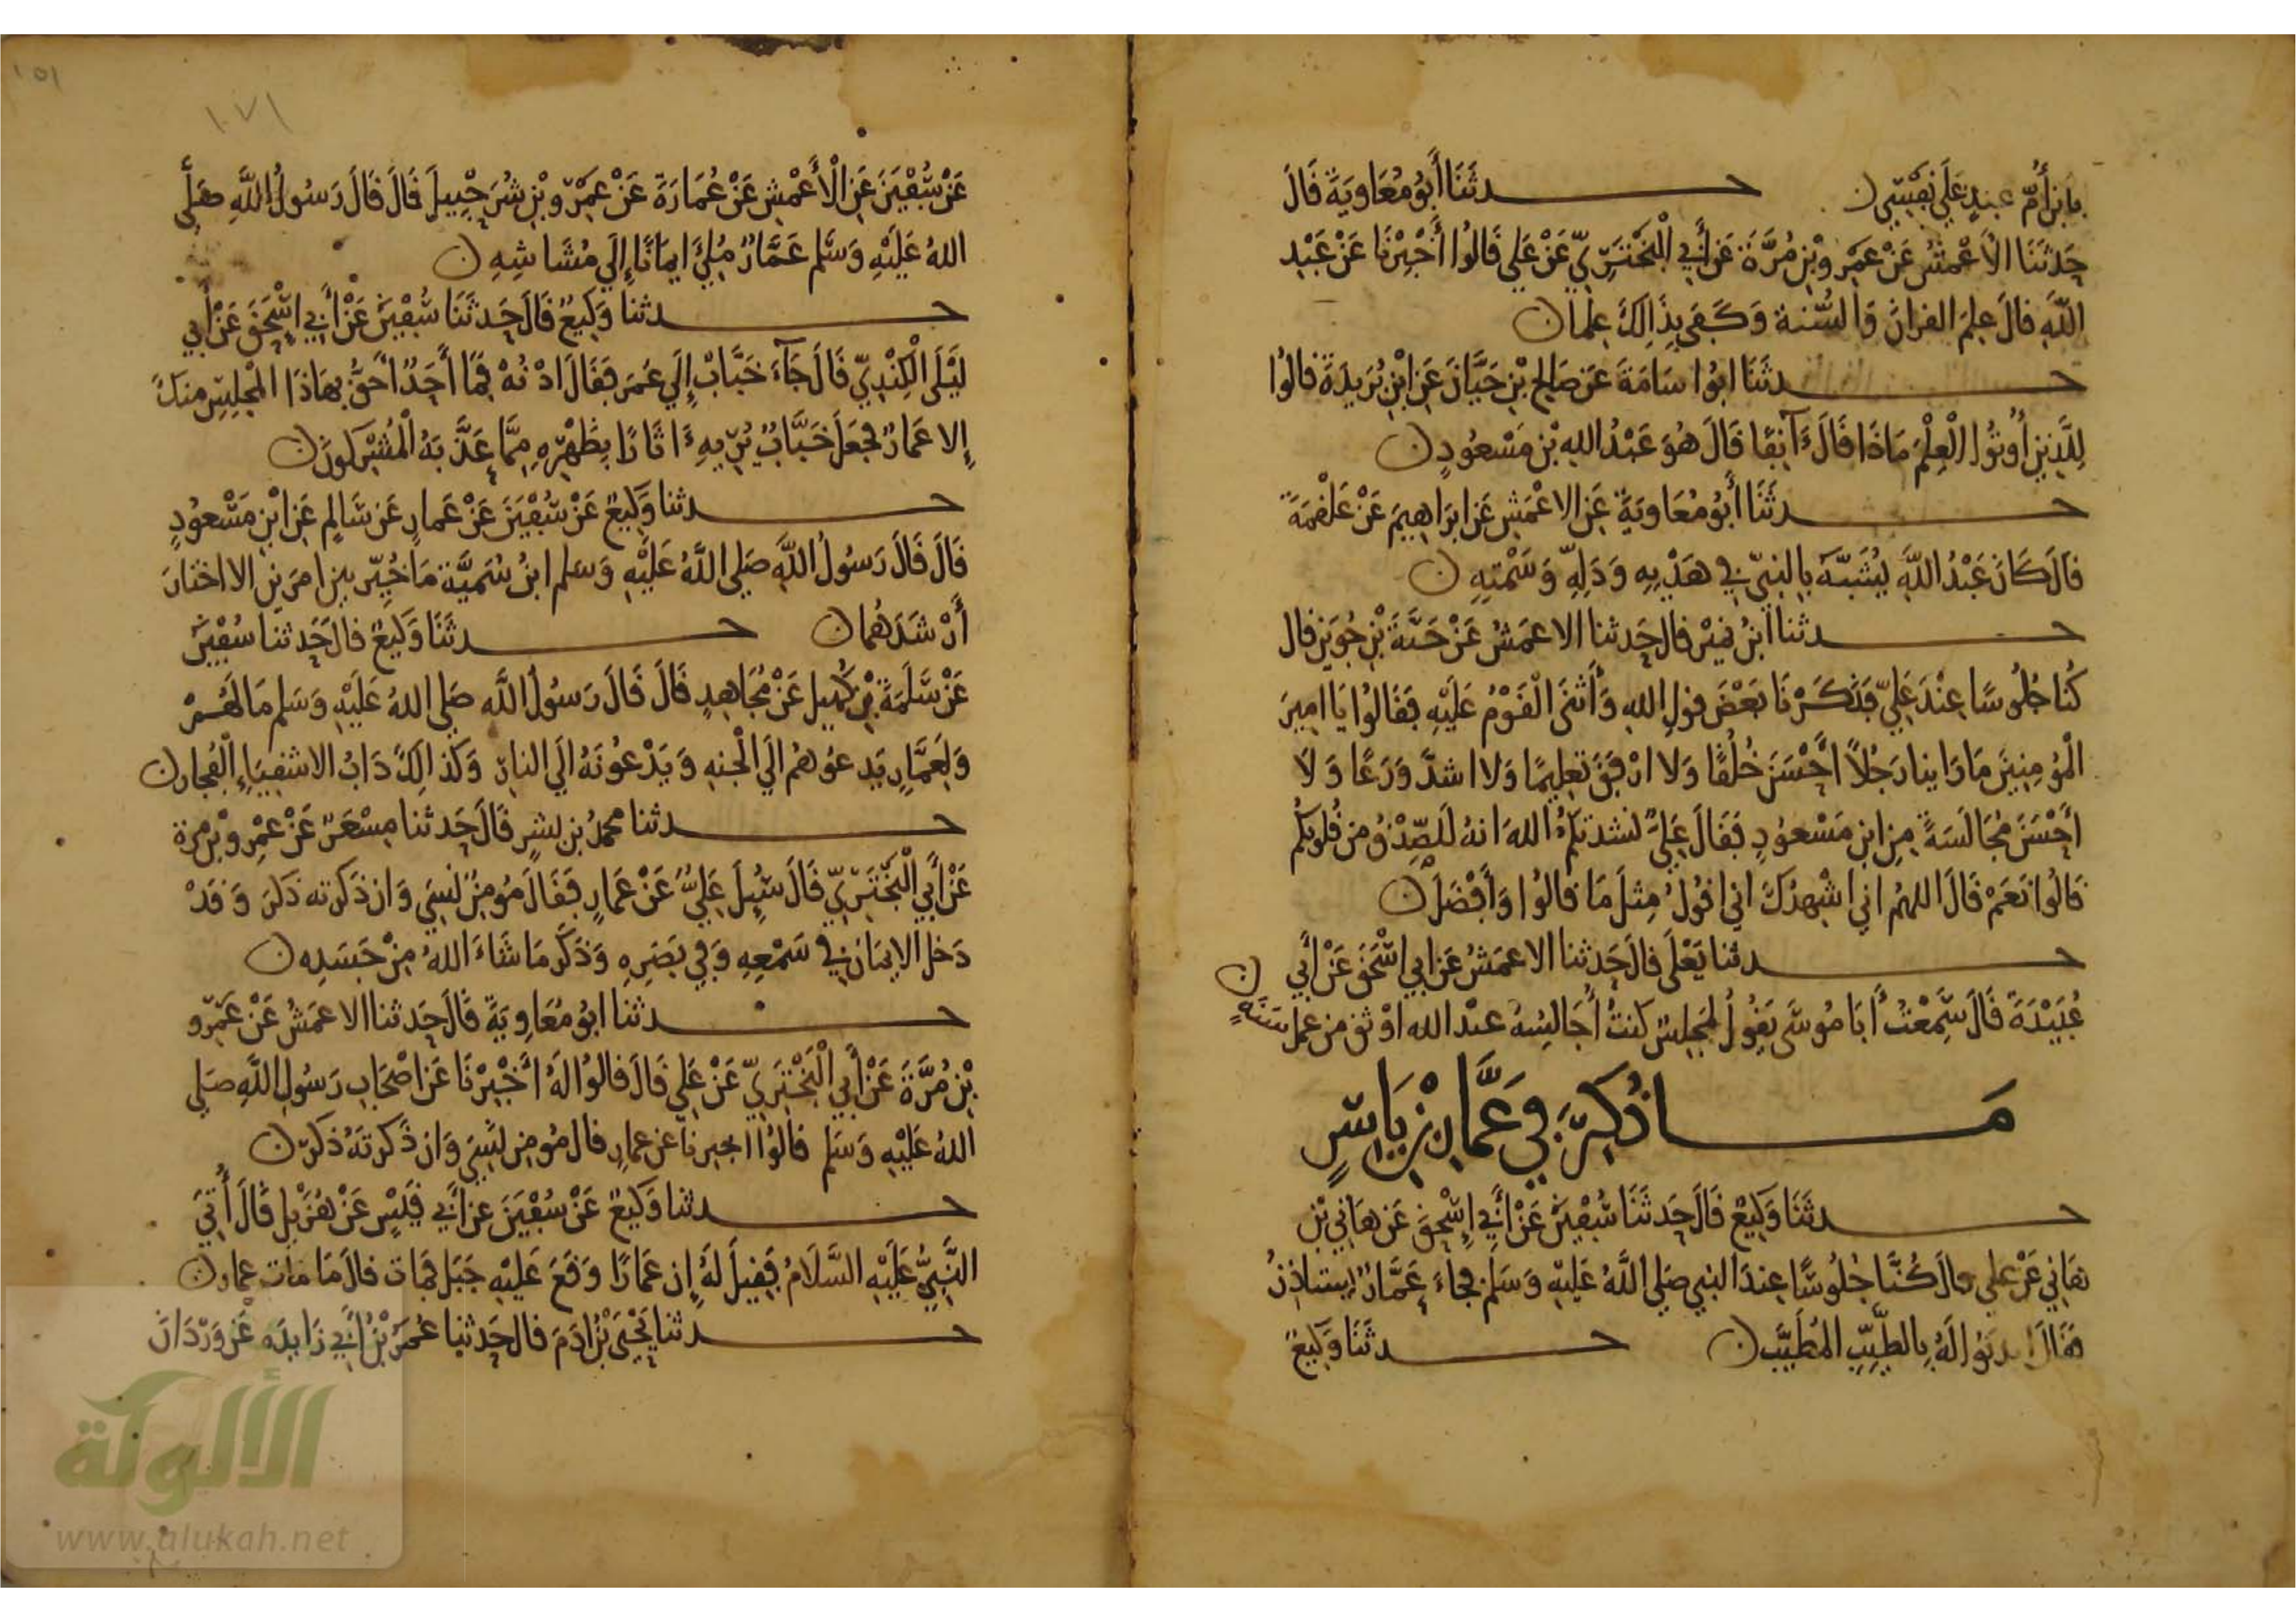 بابن أم عبد على نفسي ن حدثنا أبو معاوية قال
حدثنا الأعمش عن عمرو بن مرة عن أبي البختري عن علي قالوا أخبرنا عن عبد
الله قال علم القران والسنة وكفى بذلك علما ن
حدثنا ابو اسامة عن صالح بن حيان عن ابن بريدة قالوا
للذين أوتوا العلم ماذا قال ءآنفا قال هو عبد الله بن مسعود ن
حدثنا أبو معاوية عن الاعمش عن ابراهيم عن علقمة
قال كان عبد الله يشبه بالنبي في هديه ودله وسمته ن
حدثنا ابن نمير قال حدثنا الاعمش عن حبة بن جوين قال
كنا جلوسا عند علي فذكرنا بعض قول الله وأثنى القوم عليه فقالوا يا امير
المؤمنين ما راينا رجلا أحسن خلقا ولا ارفق تعليما ولا اشد ورعا ولا
أحسن مجالسة من ابن مسعود فقال علي نشدتكم الله انه للصدق من قلوبكم
قالوا نعم قال اللهم اني اشهدك اني اقول مثل ما قالوا وأفضل ن
حدثنا يعلى قال حدثنا الاعمش عن ابي اسحق عن أبي
عبيدة قال سمعت أبا موسى يقول لمجلس كنت أجالسه عبد الله اوثق من عمل سنة ن
ما ذكر في عمار بن ياسر
حدثنا وكيع قال حدثنا سفين عن أبي إسحق عن هاني بن
هاني عن علي قال كنا جلوسا عند النبي صلى الله عليه وسلم فجاء عمار يستاذن
فقال ايذنوا له بالطيب المطيب ن حدثنا وكيع
١٠٧١
١٥١
عن سفين عن الأعمش عن عمارة عن عمرو بن شرحبيل قال قال رسول الله صلى
الله عليه وسلم عمار ملئ ايمانا إلى مشاشه ن
حدثنا وكيع قال حدثنا سفين عن أبي اسحق عن أبي
ليلى الكندي قال جاء خباب إلى عمر فقال ادنه فما أحد أحق بهاذا المجلس منك
إلا عمار فجعل خباب يريه ءاثارا بظهره مما عذبه المشركون ن
حدثنا وكيع عن سفين عن عمار عن سالم عن ابن مسعود
قال قال رسول الله صلى الله عليه وسلم ابن سمية ما خير بين امرين الا اختار
أرشدهما ن حدثنا وكيع قال حدثنا سفين
عن سلمة بن كهيل عن مجاهد قال قال رسول الله صلى الله عليه وسلم ما لهم
ولعمار يدعوهم الى الجنه ويدعونه الى النار وكذلك داب الاشقياء الفجار ن
حدثنا محمد بن بشر قال حدثنا مسعر عن عمرو بن مرة
عن أبي البختري قال سئل علي عن عمار فقال مؤمن نسي وان ذكرته ذكر وقد
دخل الايمان في سمعه وفي بصره وذكر ما شاء الله من جسده ن
حدثنا ابو معاوية قال حدثنا الاعمش عن عمرو
بن مرة عن أبي البختري عن علي قال قالوا له أخبرنا عن اصحاب رسول الله صلى
الله عليه وسلم قالوا اخبرنا عن عمار قال مؤمن نسي وان ذكرته ذكر ن
حدثنا وكيع عن سفين عن أبي قيس عن هزيل قال أتي
النبي عليه السلام فقيل له إن عمارا وقع عليه جبل فمات قال ما مات عمار ن
حدثنا يحيى بن ادم قال حدثنا عمر بن أبي زايده عن وردان
الألوكة
www.alukah.net